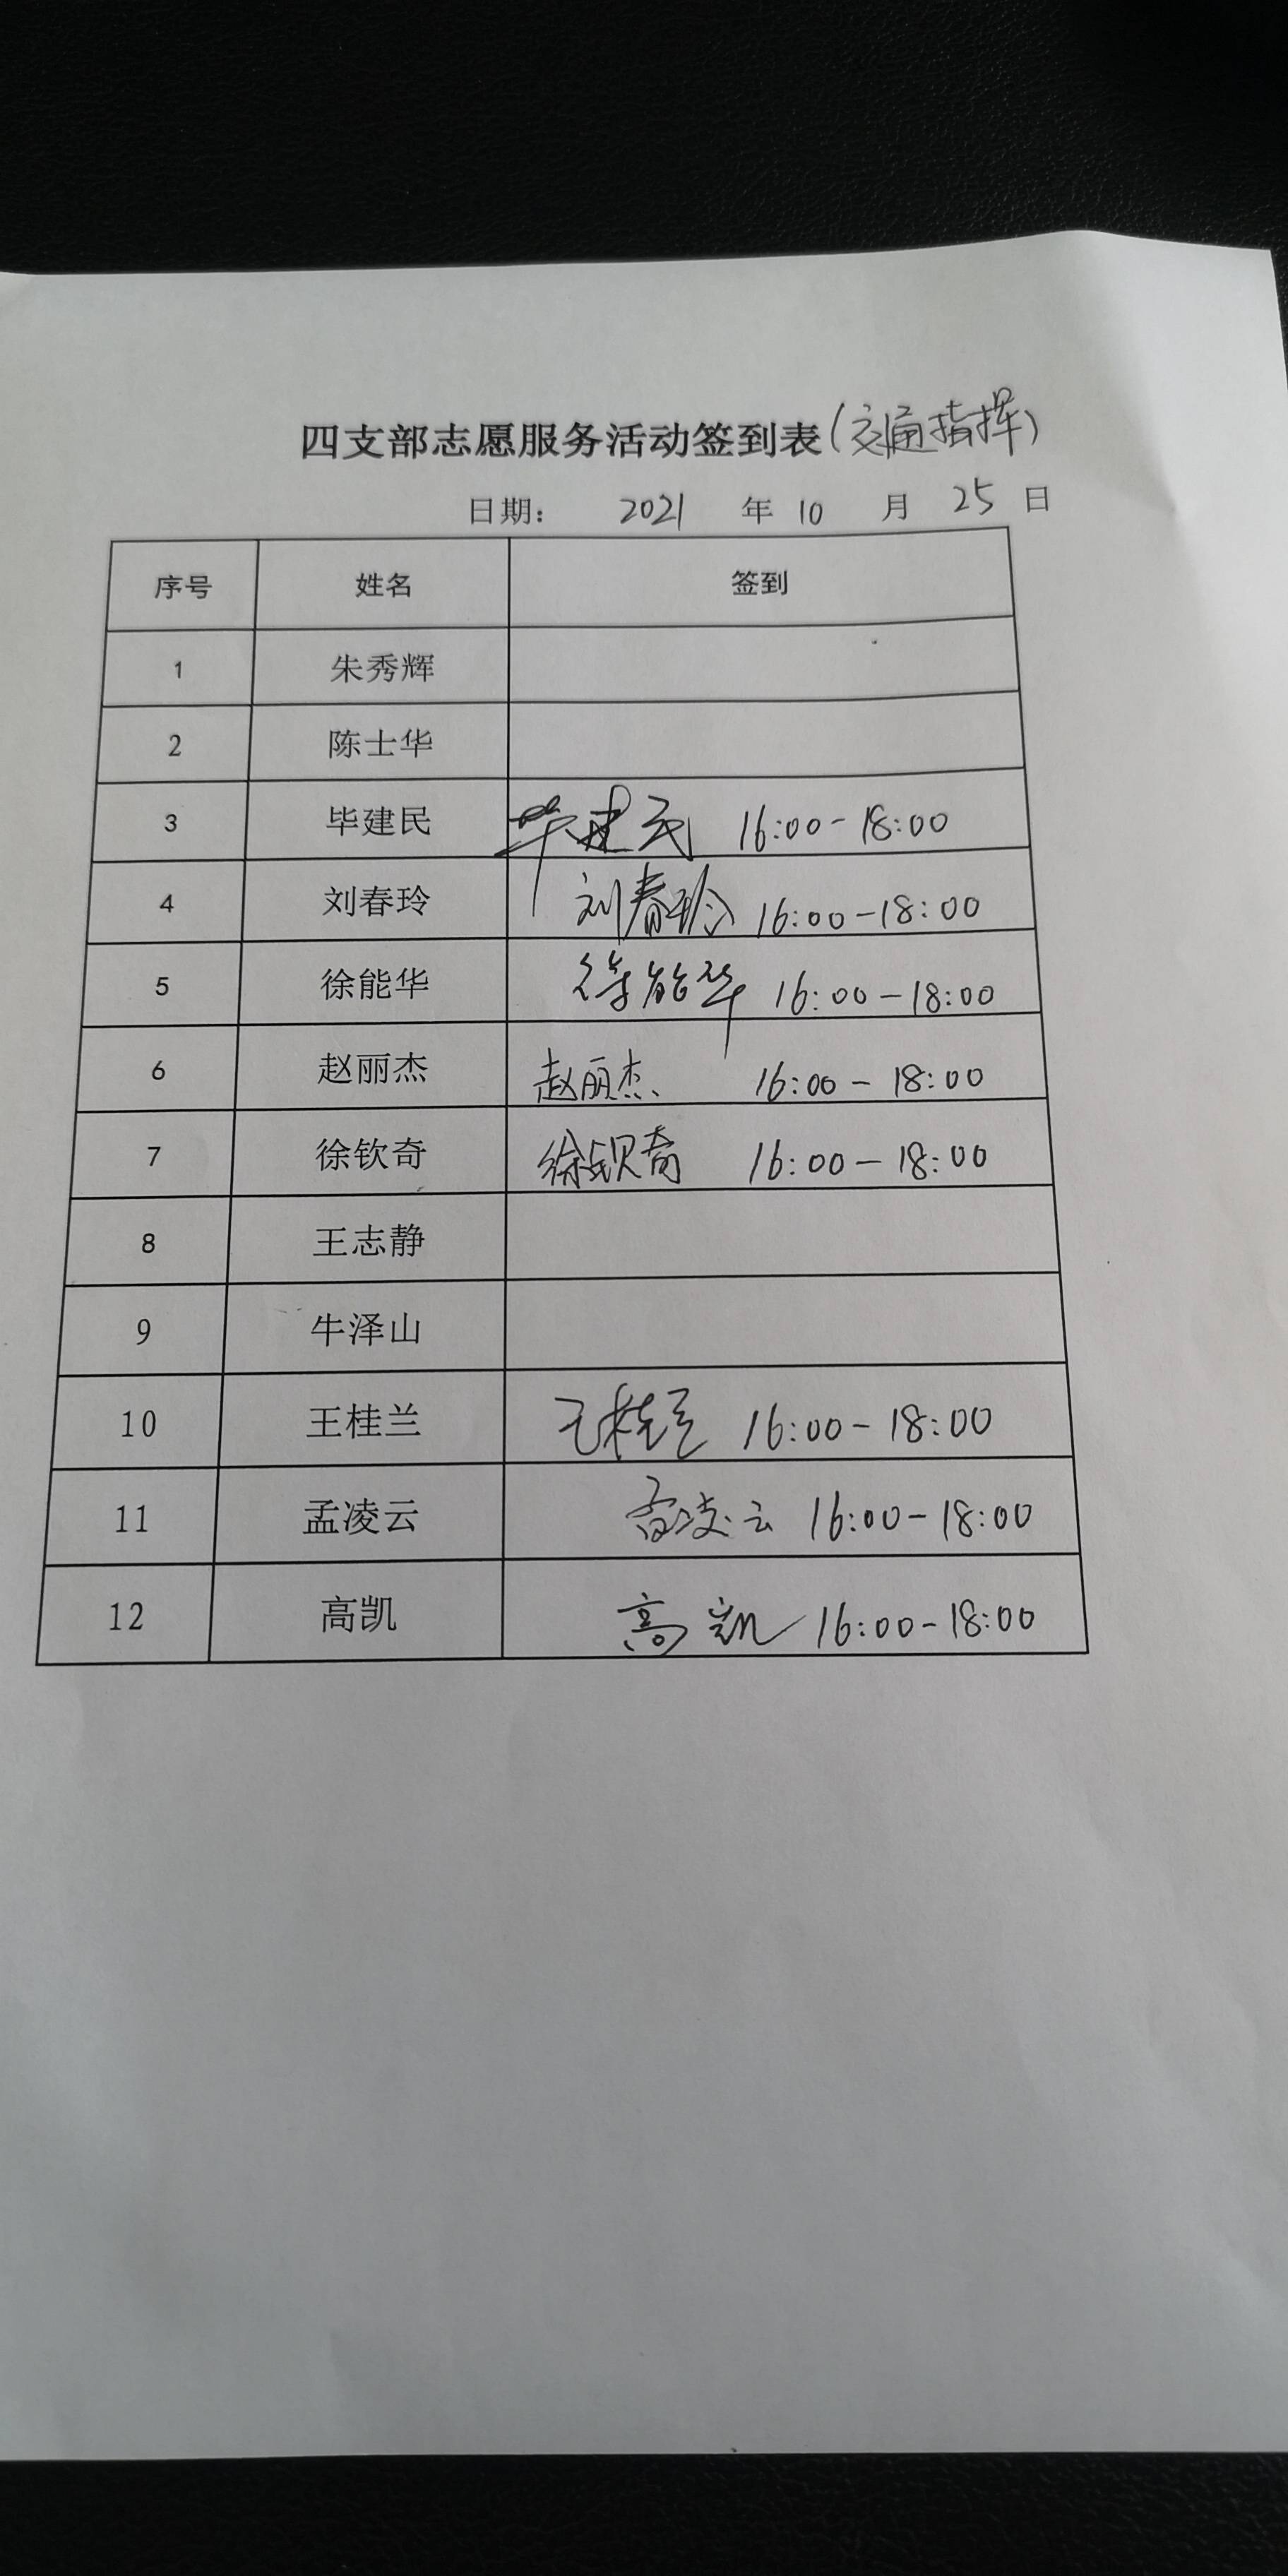 四支部志愿服务活动签到表(交通指挥)
日期: 2021 年 10 月 25 日
序号 姓名 签到
1 朱秀辉
2 陈士华
3 毕建民 毕建民 16:00-18:00
4 刘春玲 刘春玲 16:00-18:00
5 徐能华 徐能华 16:00-18:00
6 赵丽杰 赵丽杰 16:00-18:00
7 徐钦奇 徐钦奇 16:00-18:00
8 王志静
9 牛泽山
10 王桂兰 王桂兰 16:00-18:00
11 孟凌云 孟凌云 16:00-18:00
12 高凯 高凯 16:00-18:00